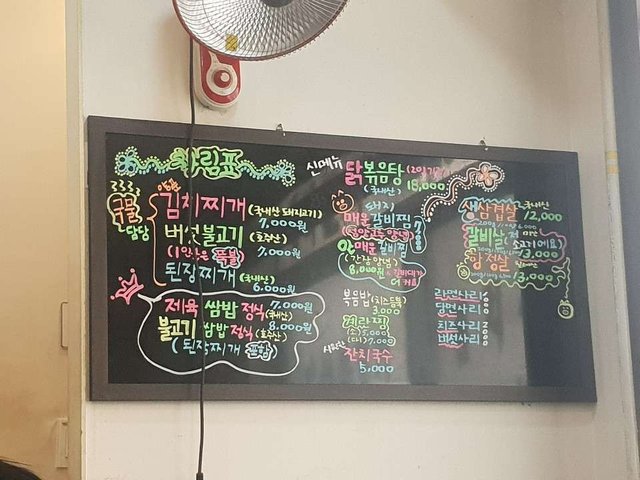 차림표
국물
담당
김치찌개 (국내산 돼지고기)
7,000원
버섯불고기 (호주산)
(1인분은 뚝불) 7,000원
된장찌개 (국내산)
6,000원
제육 쌈밥 정식 7,000원
(국내산)
불고기 쌈밥 정식 8,000원
(호주산)
(된장찌개 포함)
신메뉴 닭볶음탕 (2인기준)
(국내산) 18,000
돼지
매운 갈비찜
안매운 갈비찜
(간장양념)
8,000원
더 커요
볶음밥 (치즈듬뿍)
3,000
계란찜
(소) 5,000
(대) 7,000
시원한 잔치국수
5,000
생삼겹살 국내산
12,000
갈비살
소고기에요
13,000
항정살
13,000
라면사리
당면사리
치즈사리
버섯사리